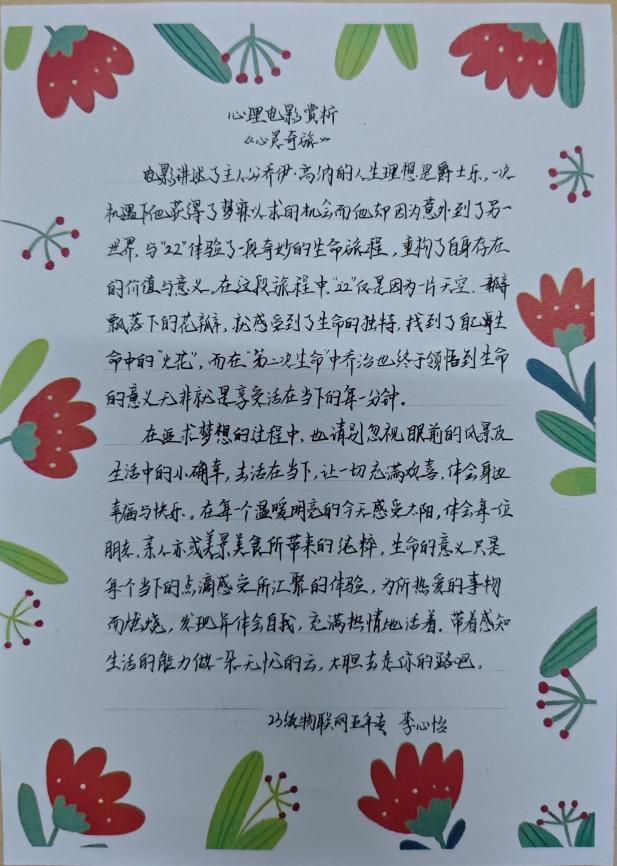 心理电影赏析
《心灵奇旅》
电影讲述了主人公乔伊·高纳的人生理想是爵士乐，一次
机遇下他获得了梦寐以求的机会而他却因为意外到了另一
世界，与“22”体验了一段奇妙的生命旅程，重构了自身存在
的价值与意义。在这段旅程中，“22”仅是因为一片天空、一瓣
飘落下的花瓣，就感受到了生命的独特，找到了自己生
命中的“火花”，而在“第二次生命”中乔治也终于领悟到生命
的意义无非就是享受活在当下的每一分钟。
在追求梦想的过程中，也请别忽视眼前的风景及
生活中的小确幸，去活在当下，让一切充满欢喜，体会身边
幸福与快乐。在每个温暖明亮的今天感受太阳，体会每一位
朋友，亲人亦或美景美食所带来的纯粹，生命的意义只是
每个当下的点滴感受所汇聚的体验，为所热爱的事物
而燃烧，发现并体会自我，充满热情地活着。带着感知
生活的能力做一朵无忧的云，大胆去走你的路吧。
23级物联网五年专 李心怡